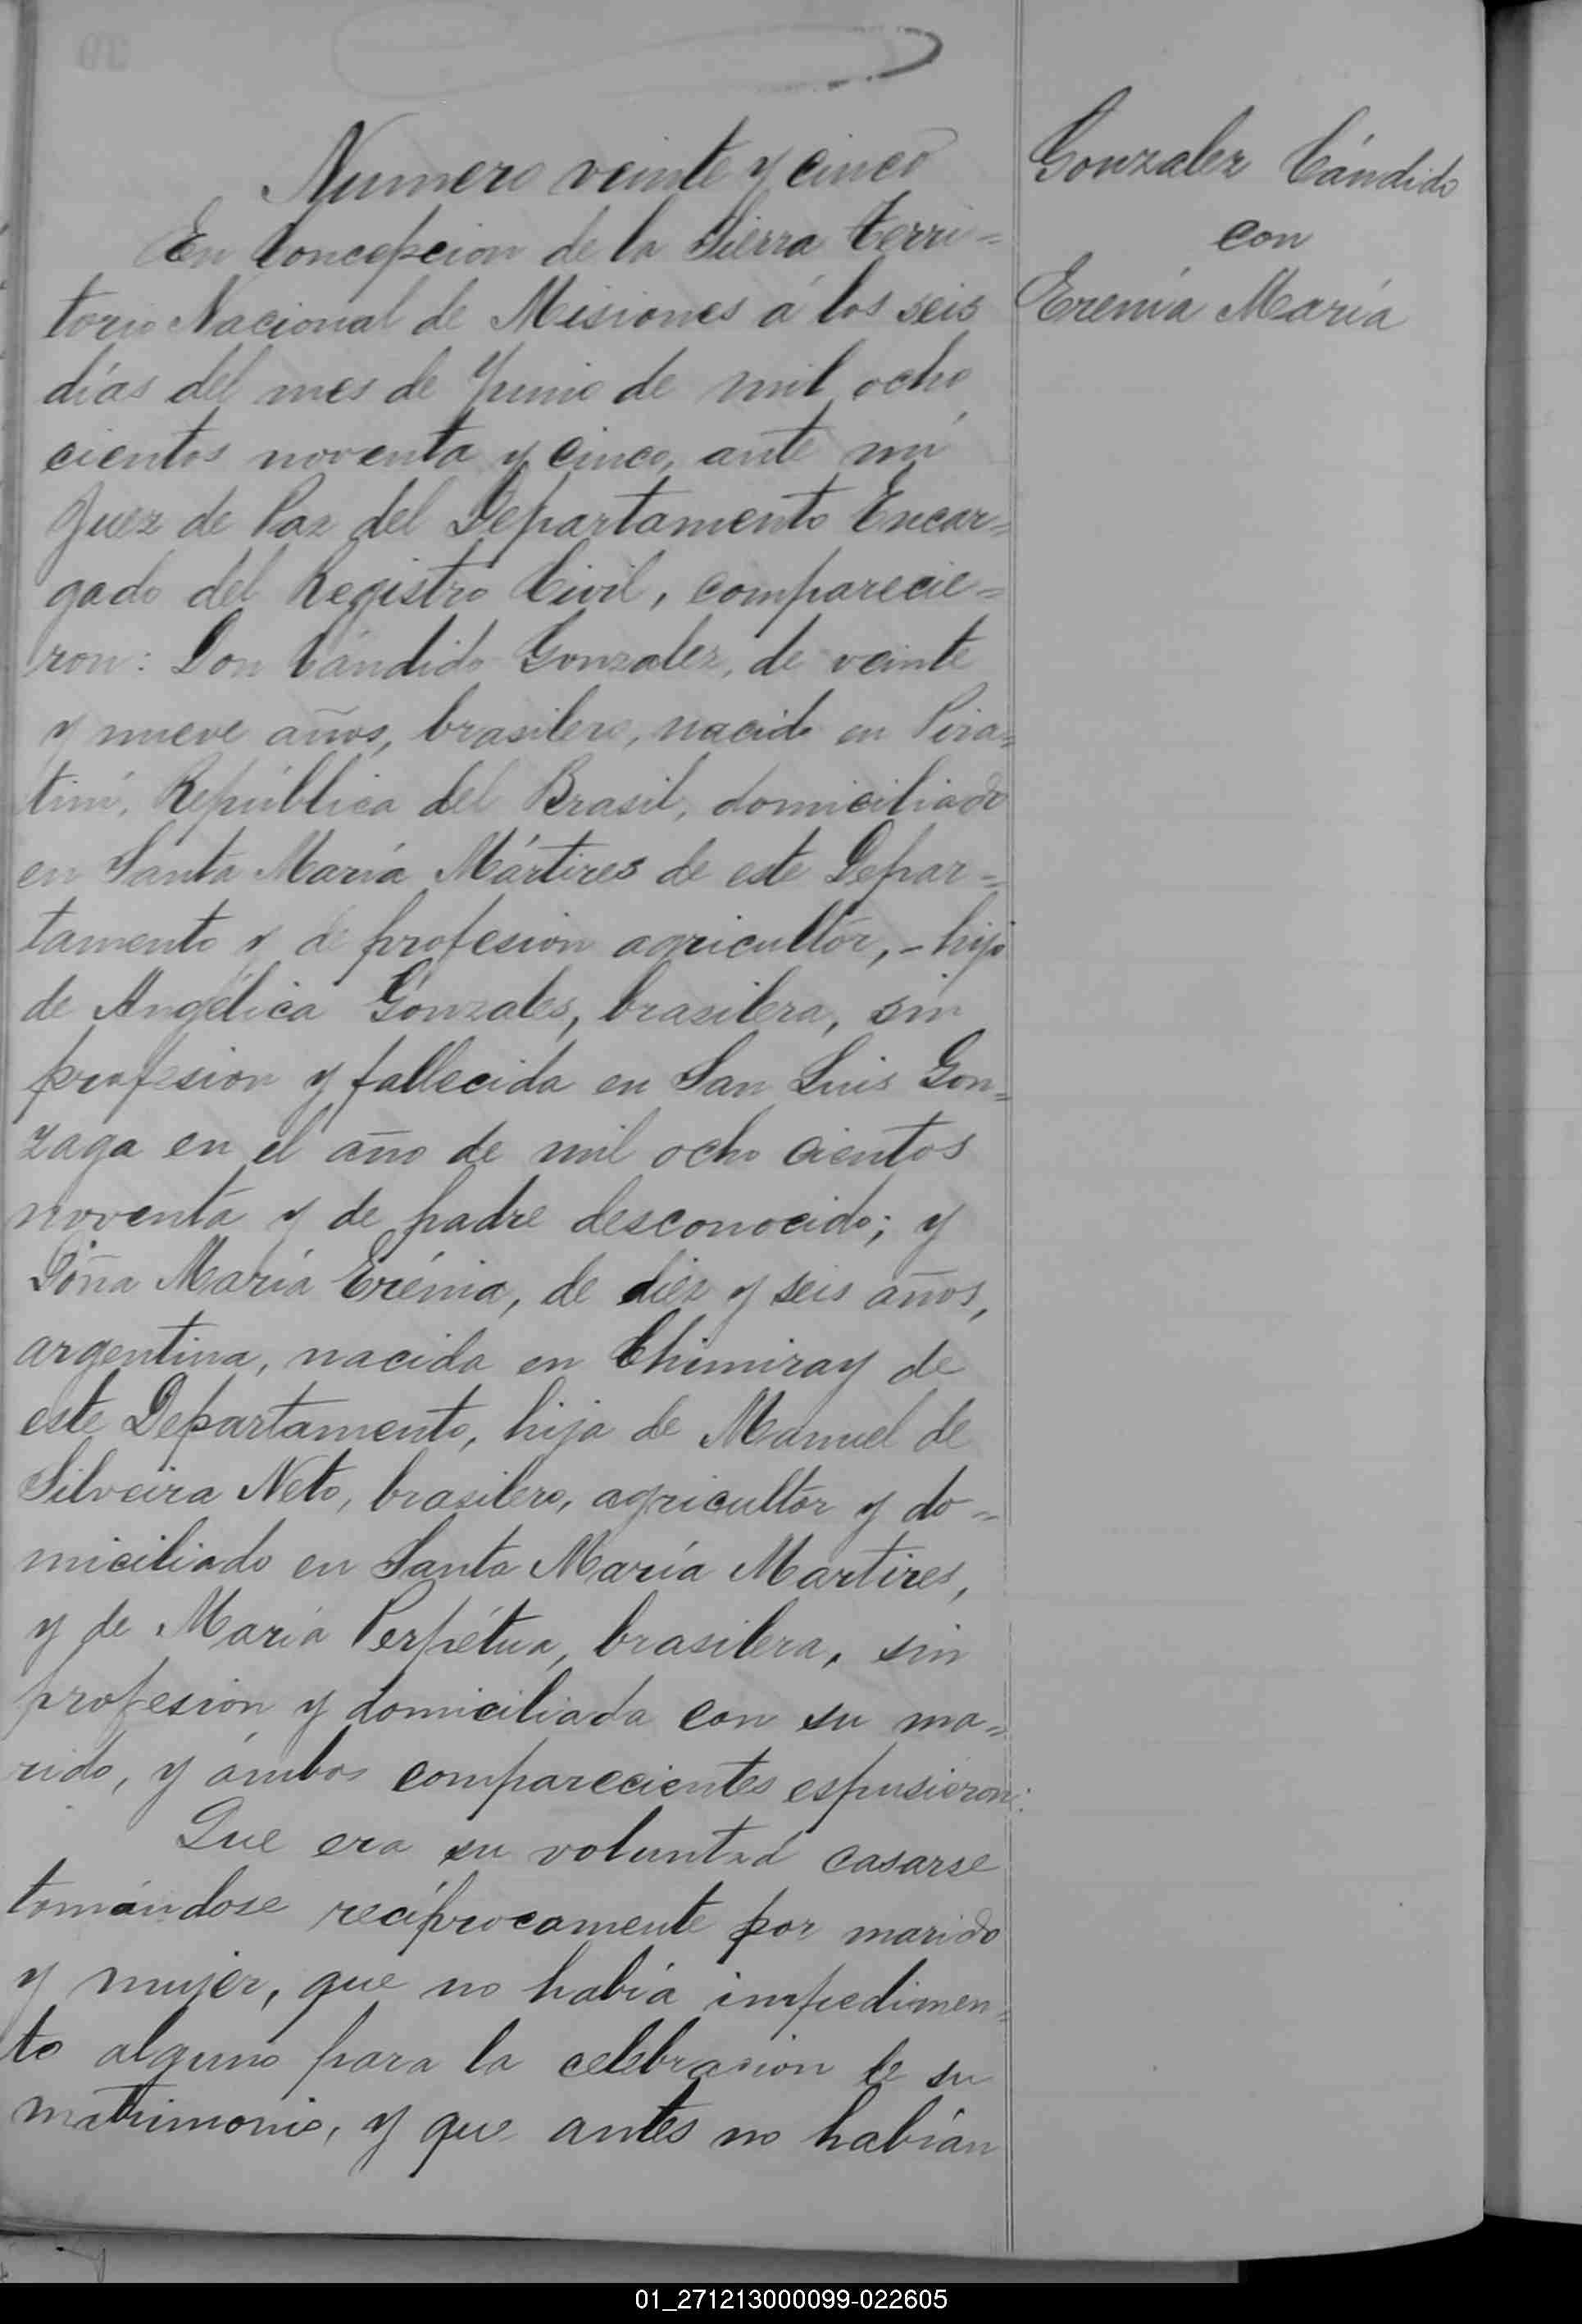 Numero veinte y cinco
En Concepcion de la Sierra Terri=
torio Nacional de Misiones á los seis
días del mes de Junio de mil ocho
cientos noventa y cinco, ante mí
Juez de Paz del Departamento Encar=
gado del Registro Civil, comparecie=
ron: Don Cándido Gonzalez, de veinte
y nueve años, brasilero, nacido en Pira=
tiní, República del Brasil, domiciliado
en Santa María Mártires de este Depar=
tamento y de profesion agricultor, - hijo
de Angélica Gonzales, brasilera, sin
profesion y fallecida en San Luis Gon=
zaga en el año de mil ocho cientos
noventa y de padre desconocido; y
Doña María Erénia, de diez y seis años,
argentina, nacida en Chimiray de
este Departamento, hija de Manuel de
Silveira Neto, brasilero, agricultor y do=
miciliado en Santa María Martires,
y de María Perpétua, brasilera, sin
profesion y domiciliada con su ma=
rido, y ámbos comparecientes espusieron:
Que era su voluntad casarse
tomándose recíprocamente por marido
y mujer, que no había impedimen=
to alguno para la celebracion de su
matrimonio, y que antes no habían
Gonzalez Cándido
con
Erenia María
01_271213000099-022605